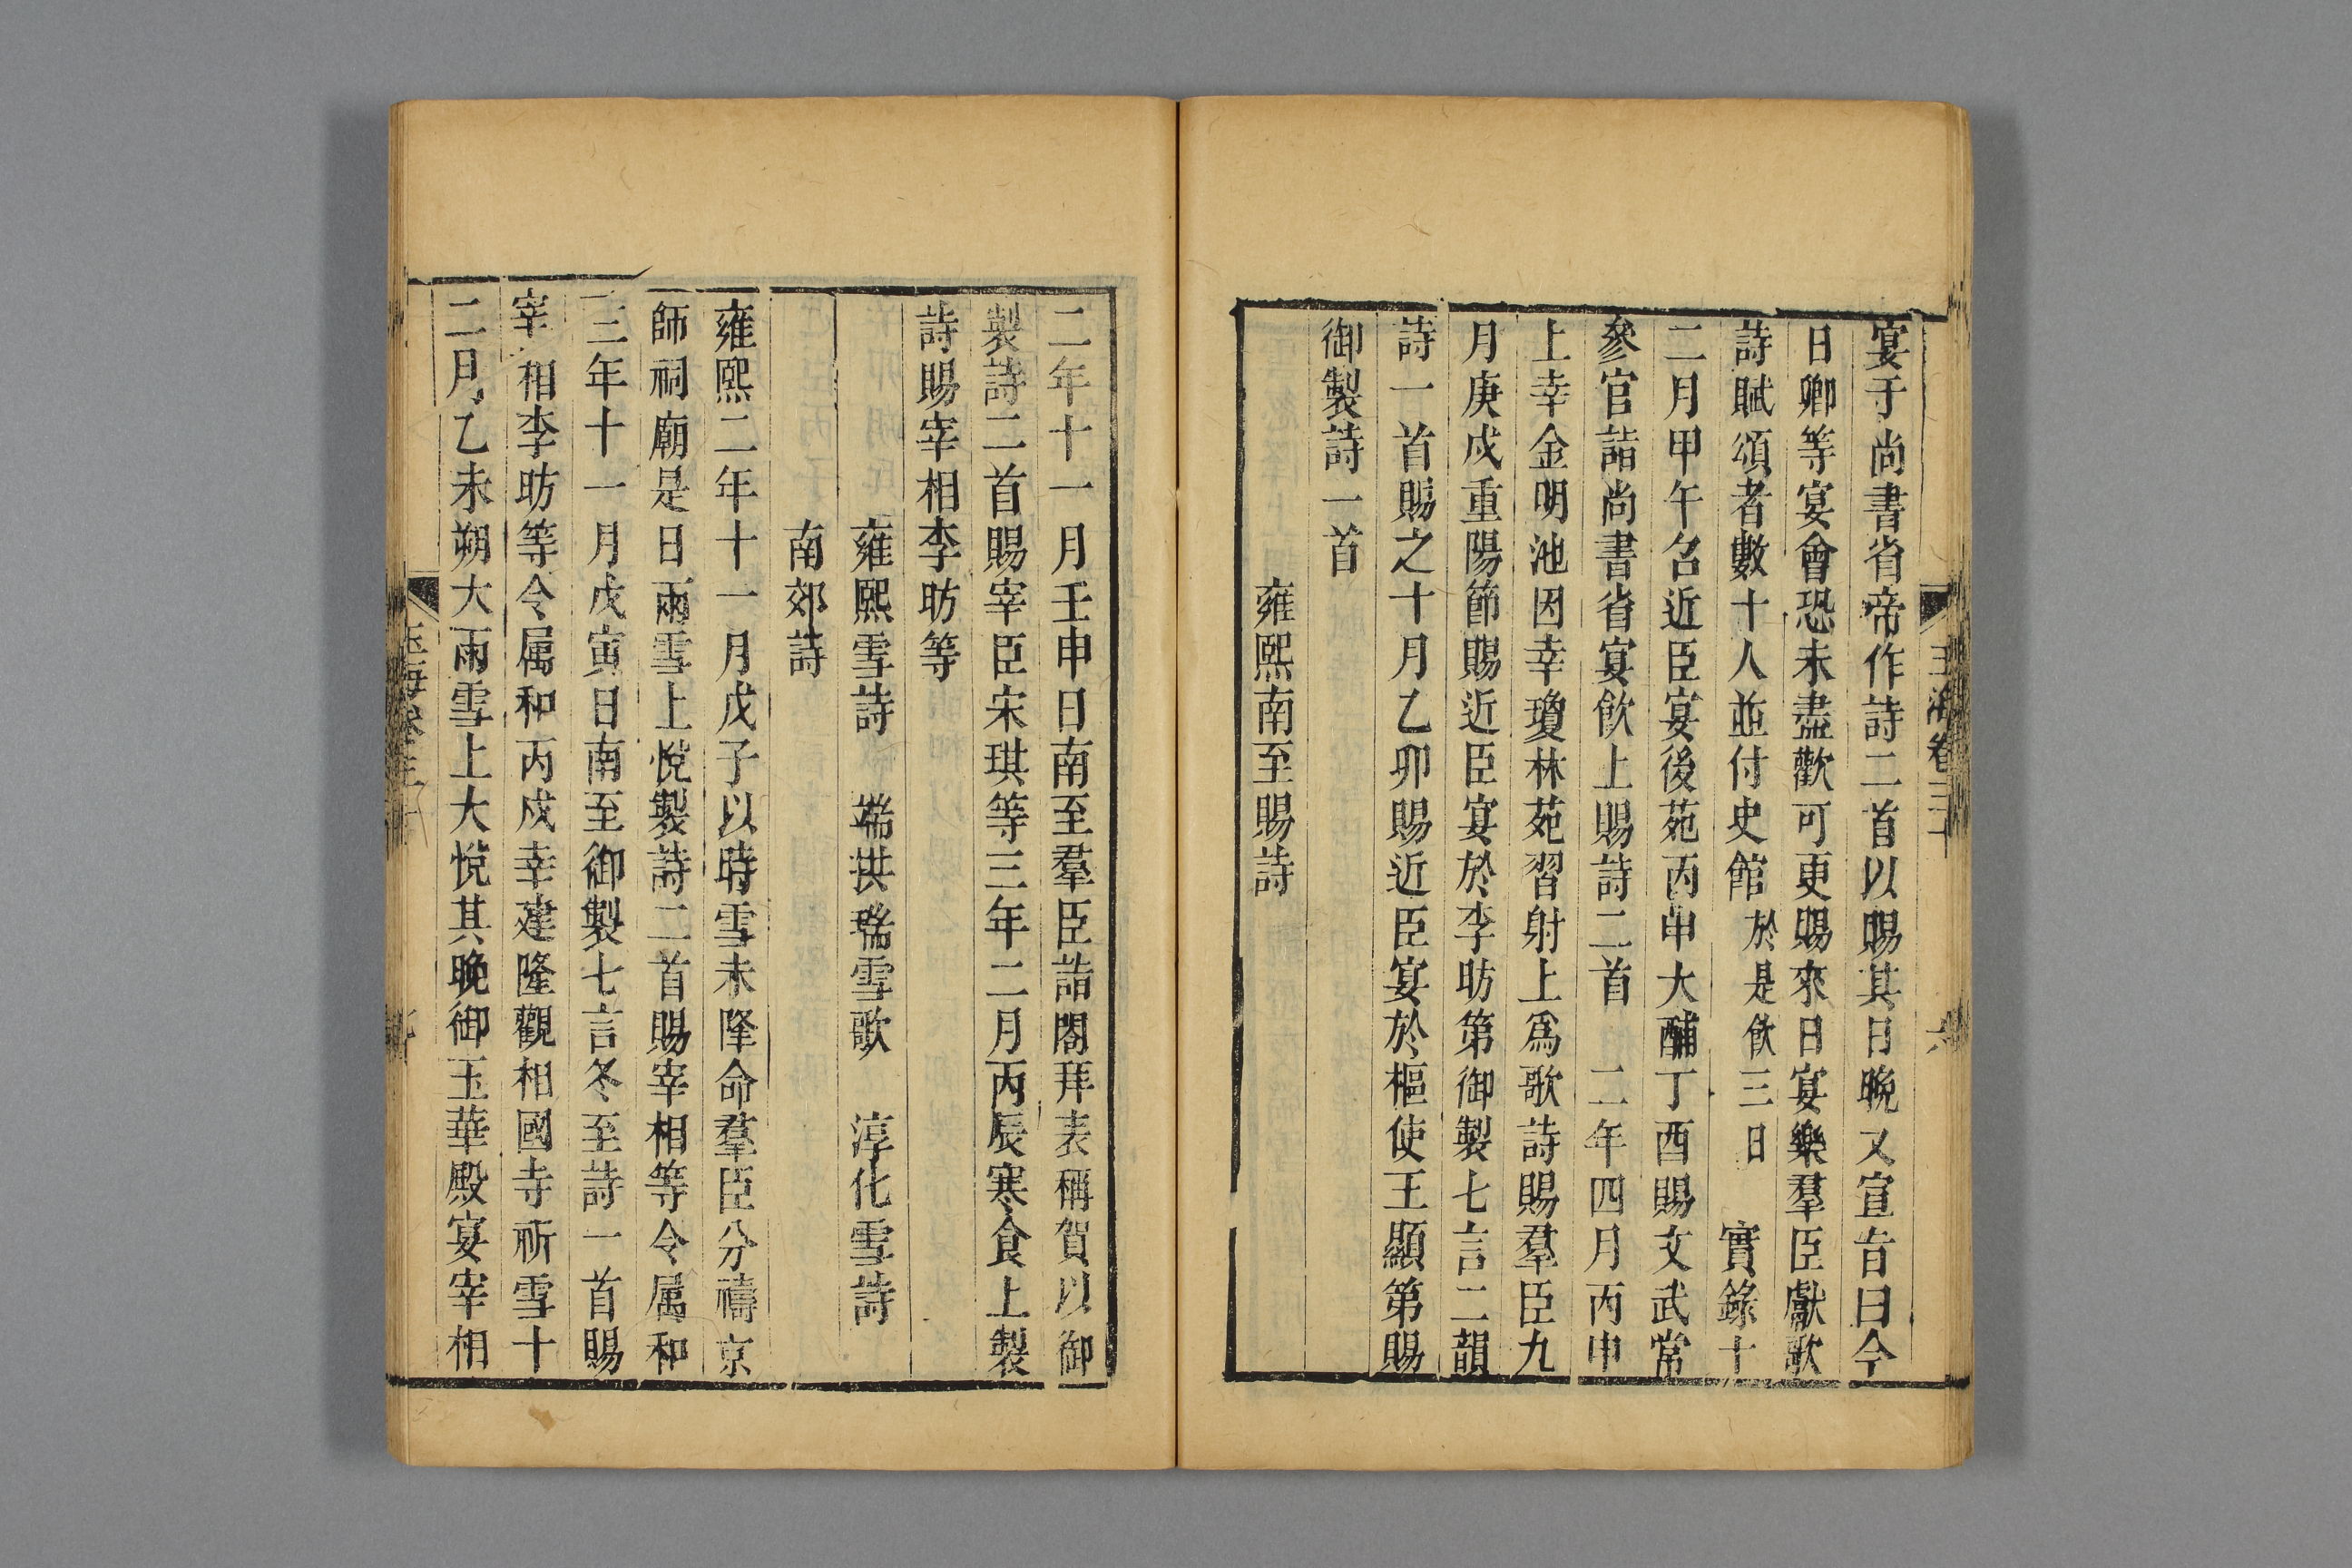 宴于尚書省帝作詩二首以賜其日晚又宣旨曰今
日卿等宴會恐未盡歡可更賜來日宴樂羣臣獻歌
詩賦頌者數十人並付史館於是飲三日實錄十
二月甲午召近臣宴後苑丙申大酺丁酉賜文武常
參官詣尚書省宴飲上賜詩二首 二年四月丙申
上幸金明池因幸瓊林苑習射上爲歌詩賜羣臣九
月庚戌重陽節賜近臣宴於李昉第御製七言二韻
詩一首賜之十月乙卯賜近臣宴於樞使王顯第賜
御製詩一首
雍熙南至賜詩
二年十一月壬申日南至羣臣詣閤拜表稱賀以御
製詩二首賜宰臣宋琪等三年二月丙辰寒食上製
詩賜宰相李昉等
雍熙雪詩 端拱瑞雪歌 淳化雪詩
南郊詩
雍熙二年十一月戊子以時雪未降命羣臣分禱京
師祠廟是日雨雪上悅製詩二首賜宰相等令属和
三年十一月戊寅日南至御製七言冬至詩一首賜
宰相李昉等令属和丙戌幸建隆觀相國寺祈雪十
二月乙未朔大雨雪上大悅其晚御玉華殿宴宰相